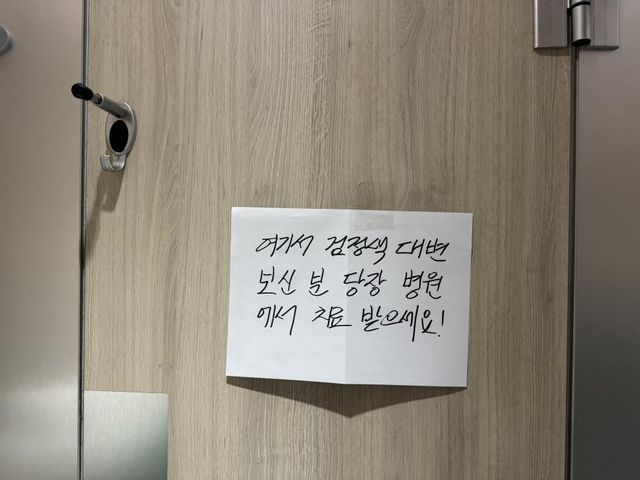 여기서 검정색 대변
보신 분 당장 병원
에서 치료 받으세요!